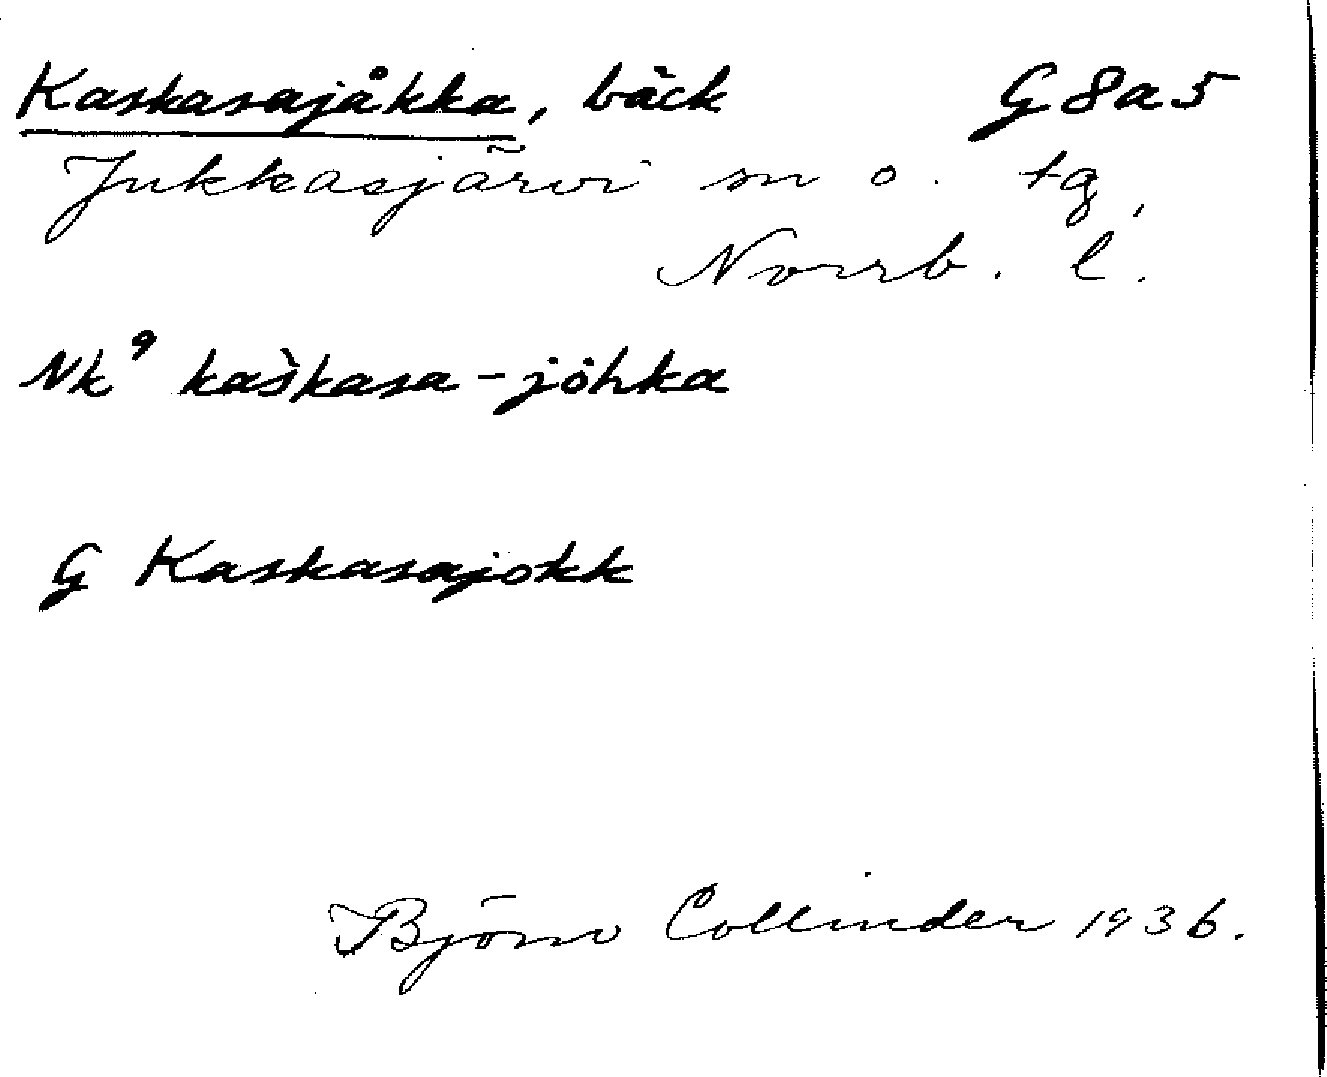 Kaskasajåkka, bäck G 8 a 5
Jukkasjärvi sn o. tg,
Norrb. l.
Nk⁹ kaškasa-jȯhka
G Kaskasajokk
Björn Collinder 1936.